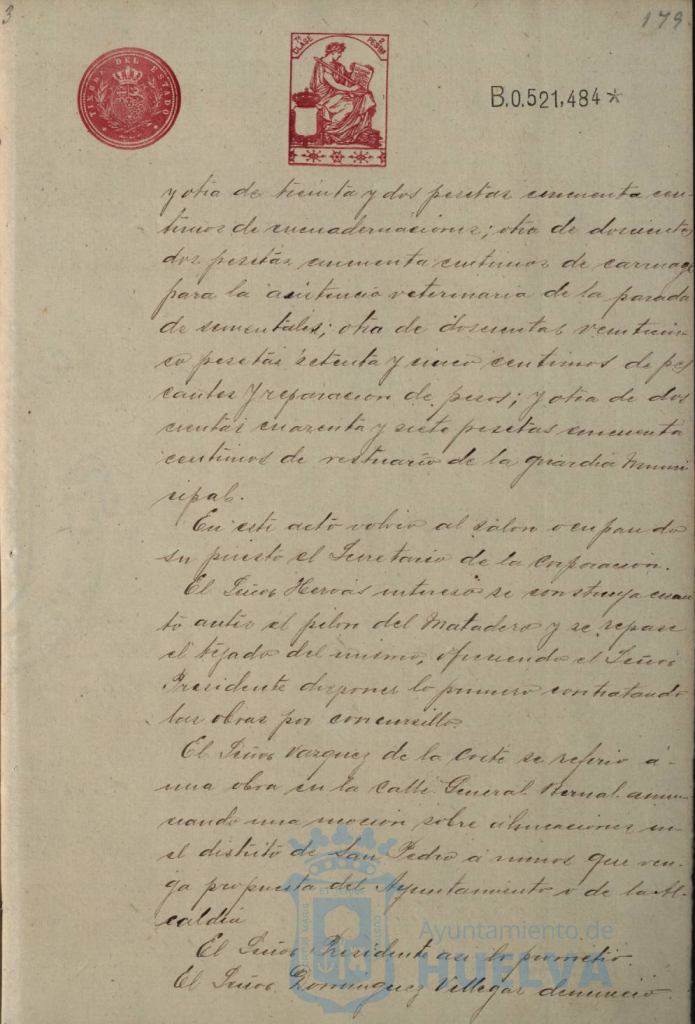 3
179
TIMBRE DEL ESTADO
7ª CLASE
2 PESETAS
B.0.521,484*
y otra de treinta y dos pesetas cincuenta cen
timos de encuadernaciones; otra de doscientas
dos pesetas cincuenta centimos de carruage
para la asistencia veterinaria de la parada
de sementales; otra de doscientas veinticin
co pesetas setenta y cinco centimos de pes
cantes y reparacion de pesos; y otra de dos
cientas cuarenta y siete pesetas cincuenta
centimos de vestuario de la guardia muni
cipal.
En este acto volvio al salon ocupando
su puesto el Secretario de la Corporacion.
El Señor Hervás intereso se construya cuan
to antes el pilon del Matadero y se repase
el tejado del mismo, ofreciendo el Señor
Presidente disponer lo primero contratando
las obras por concursillo.
El Señor Vazquez de la Corte se refirio á
una obra en la calle General Bernal anun
ciando una mocion sobre alineaciones en
el distrito de San Pedro á menos que ven
ga propuesta del Ayuntamiento o de la Al
caldia
El Señor Presidente asi lo prometio.
El Señor Dominguez Villegas denunció
Ayuntamiento de
HUELVA